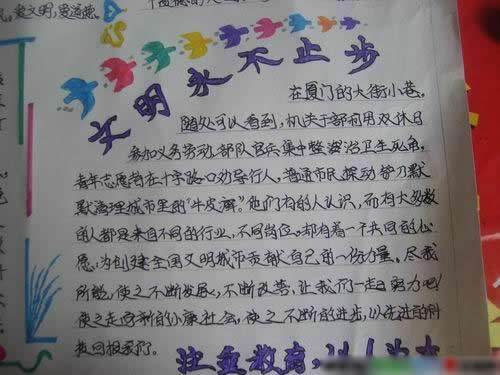 文明永不止步
在厦门的大街小巷。
随处可以看到,机关干部利用双休日
参加义务劳动、部队官兵集中整治卫生死角,
青年志愿者在十字路口劝导行人,普通市民挥动铲刀默
默清理城市里的“牛皮癣”。他们有的人认识,而有大多数
的人都是来自不同的行业,不同岗位。却有着一个共同的心
愿,为创建全国文明城市贡献自己的一份力量。尽我
所能,使之不断发展,不断改善,让我们一起努力吧!
使之走向新的小康社会,使之不断的进步,以先进的科
技回报
注重教育,以人为本